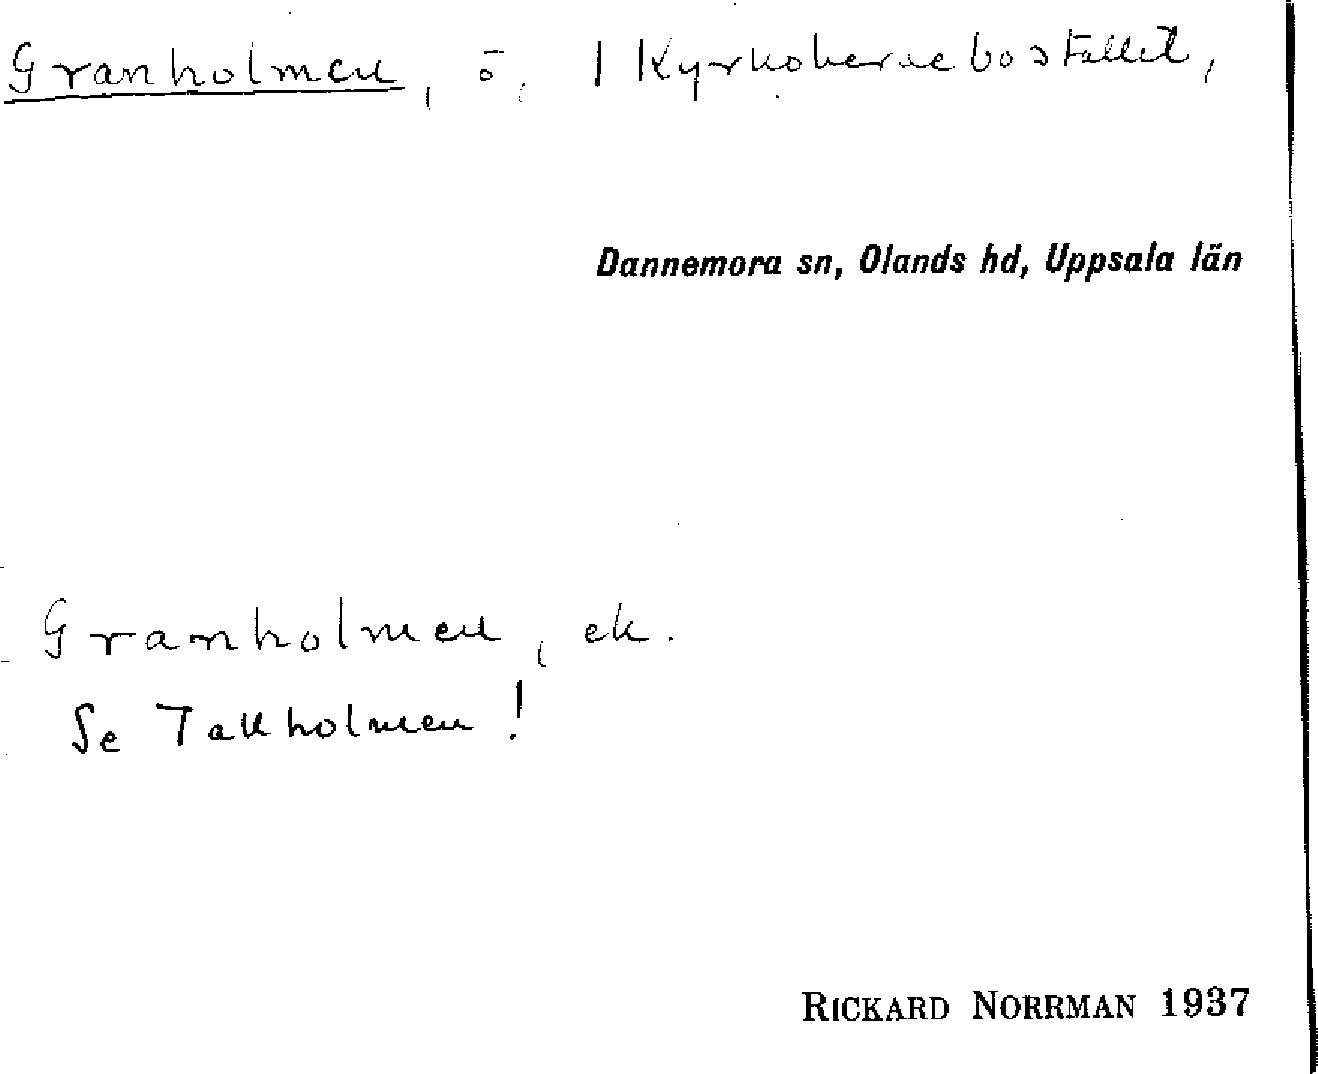 Granholmen, ö, 1 Kyrkoherdebostället,
Dannemora sn, Olands hd, Uppsala län
Granholmen, ek.
Se Tallholmen!
RICKARD NORRMAN 1937